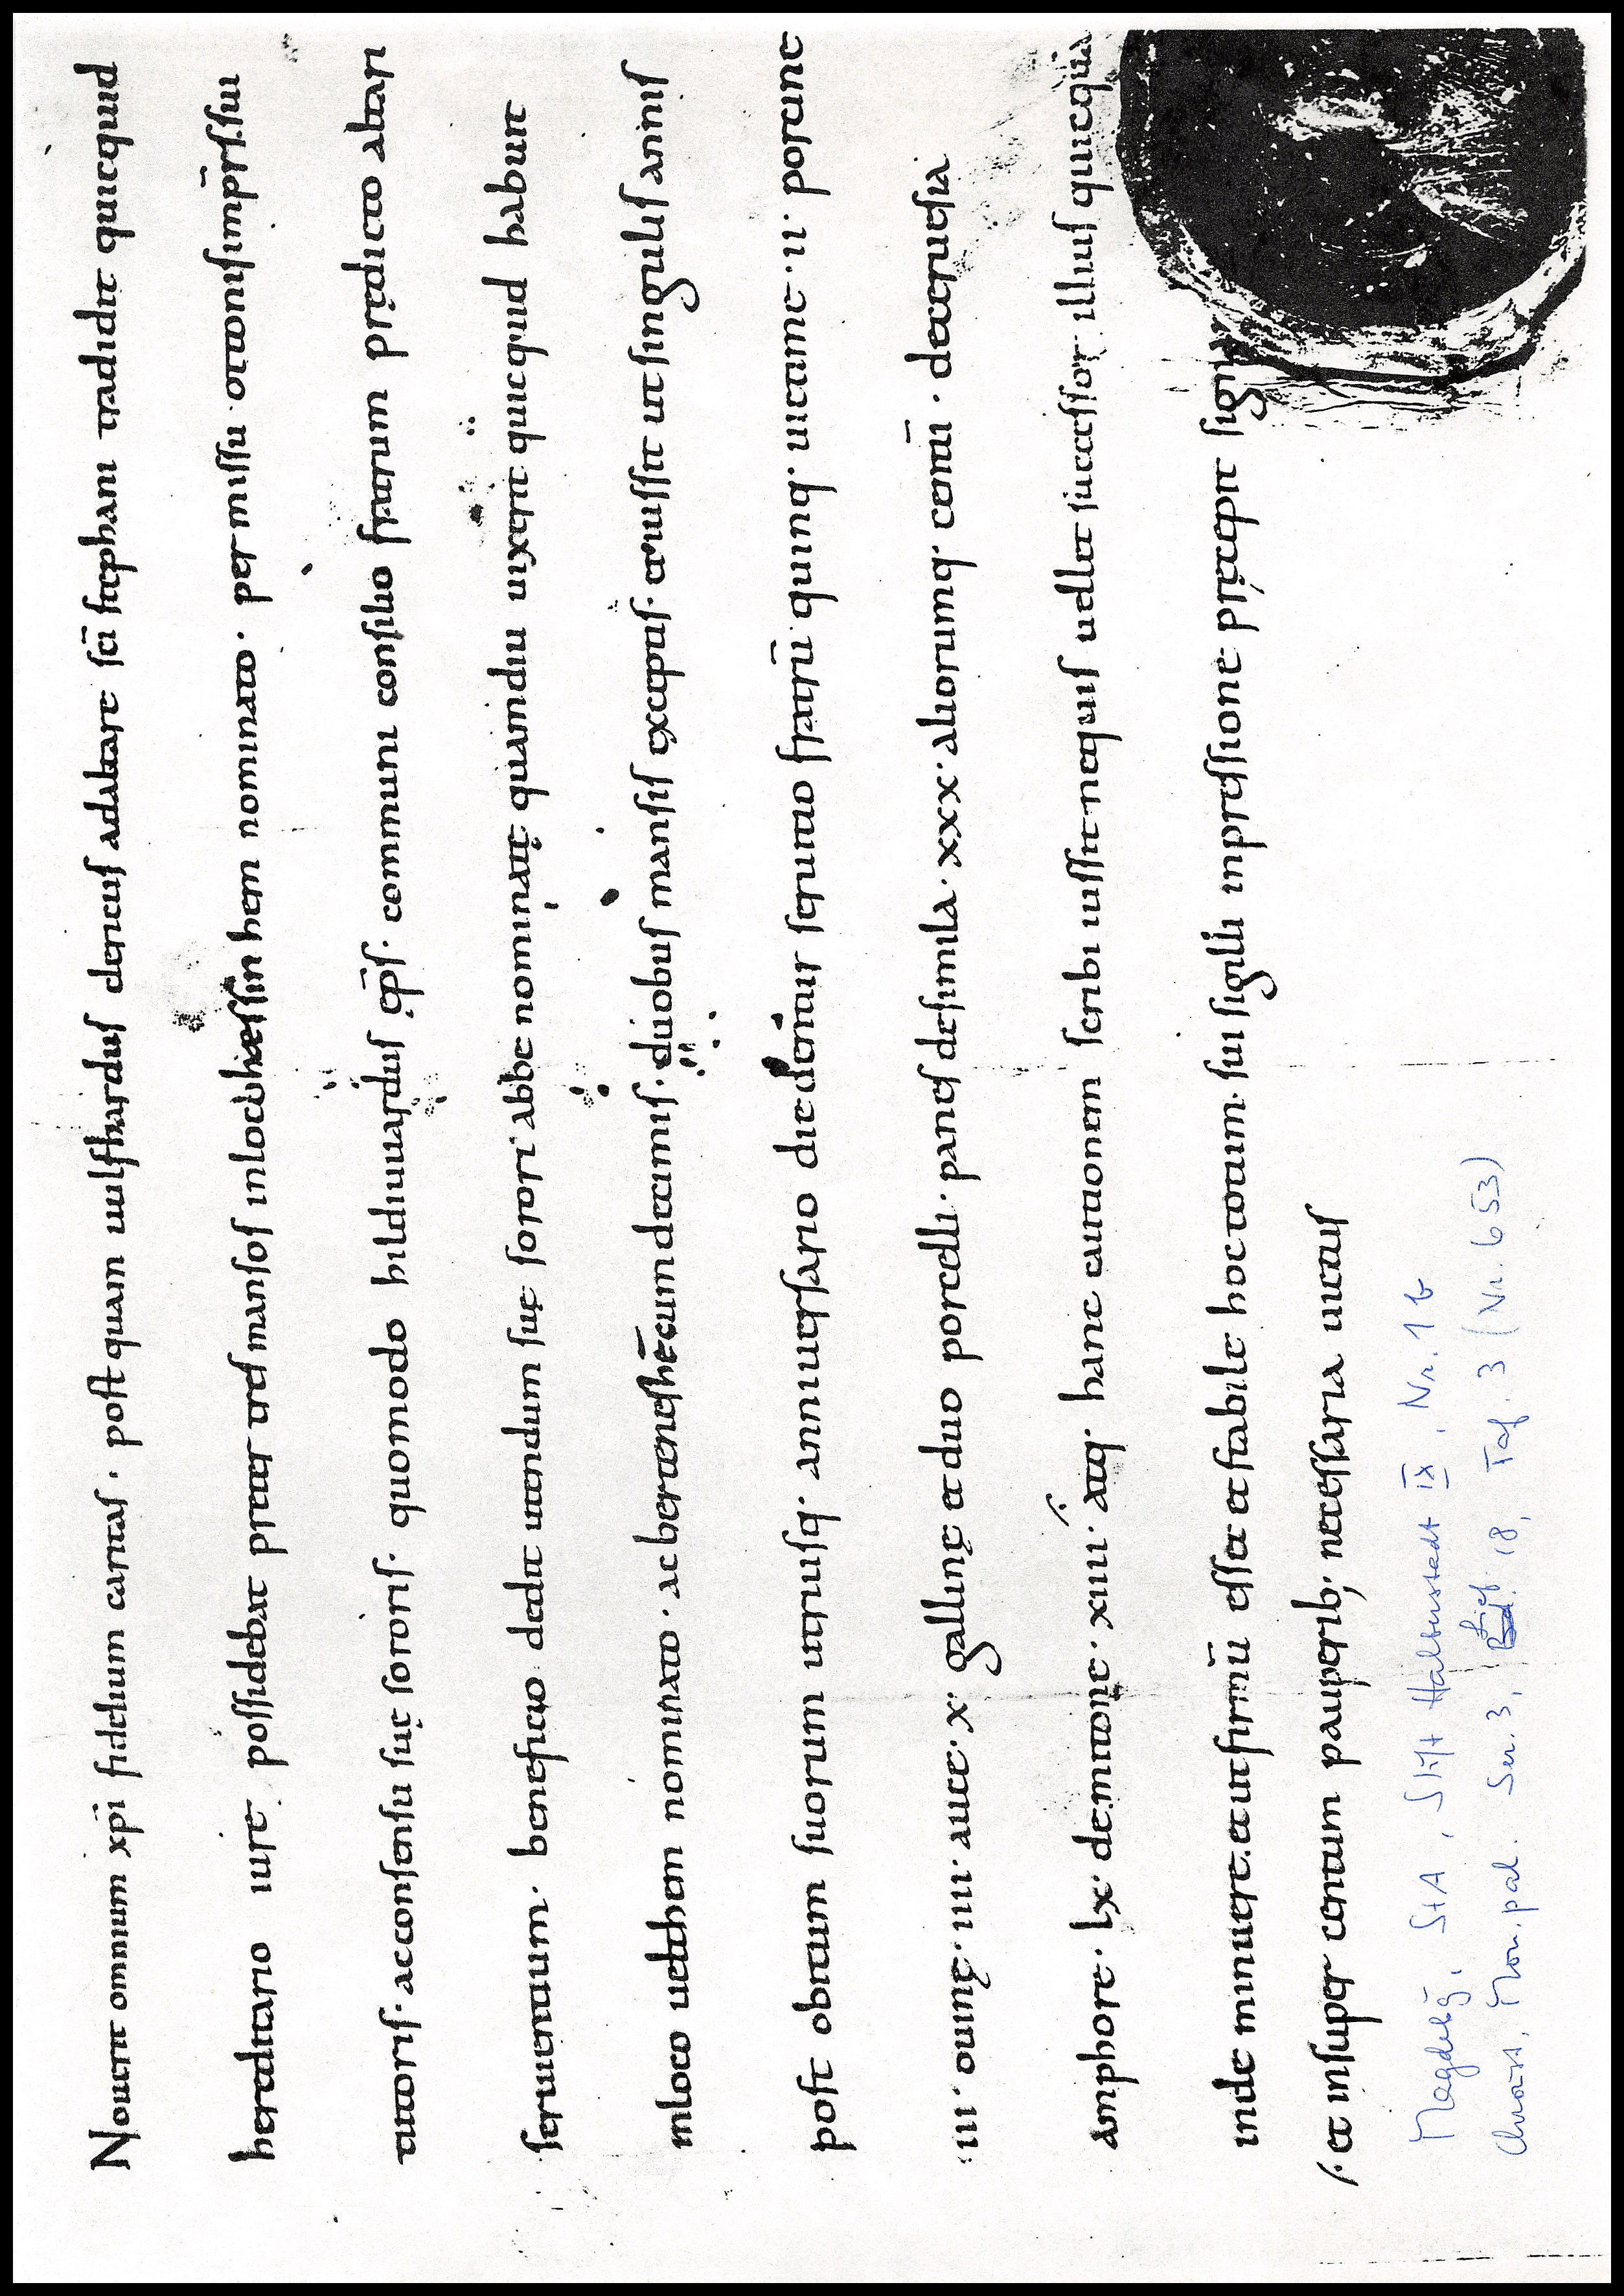 Nouerit omnium xp̄i fidelium caritas · postquam uulfhardus clericus ad altare sc̄i stephani tradidit quicquid
hereditario iure possidebat preter tres mansos in loco hessinhem nominato · permissu ottonis imp̄r̄s · sui
tutoris · ac consensu suę sororis · quomodo hildiuuardus ęp̄s · communi consilio fratrum prędicto altari
seruientium · beneficio dedit utendum suę sorori abbe nominatę quamdiu uixerit quicquid habuit
in loco uetthem nominato · ac berteneshēcum decimis · duobus mansis exceptis · et iussit ut singulis annis
post obitum suorum utriusq· anniuersario die detur seruitio fratrū quinq· uictime · ii · porcine
· iii · ouinę · iiii · aucę · x · gallinę et duo porcelli · panes de simila · xxx · aliorumq· centū · de ceruesia
amphorę · lx · de mitone · xiiii · atq· hanc cautionem scribi iussit · ne quis uellet successor illius quicquā
inde minuere · et ut firmū esset et stabile hoc totum · sui sigilli inpressione pręcepit sign
/· et insuper centum pauperib; necessaria uictus
Magdebg., StA, Stift Halberstadt IX, Nr. 1b
Chroust, Mon. pal. Ser. 3, Lief. 18, Taf. 3 (Nr. 653)